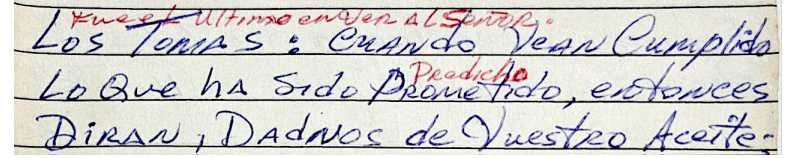 Fue el Ultimo en Ver AL SEÑOR.
Los TOMAS: CUANDO VEAN Cumplido
Predicho
Lo Que hA Sido PROMETIDO, entonces
DIRAN, DADNOS de Vuestro Aceite: